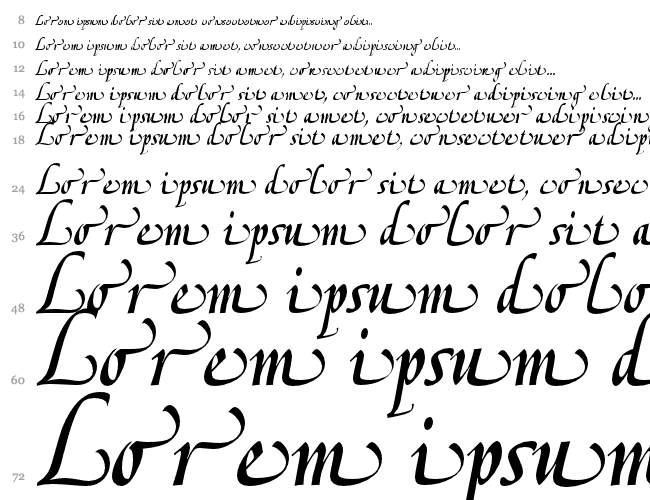 8 Lorem ipsum dolor sit amet consectetuer adipiscing elit...
10 Lorem ipsum dolor sit amet, consectetuer adipiscing elit...
12 Lorem ipsum dolor sit amet, consectetuer adipiscing elit...
14 Lorem ipsum dolor sit amet, consectetuer adipiscing elit...
16 Lorem ipsum dolor sit amet, consectetuer adipiscing
18 Lorem ipsum dolor sit amet, consectetuer adip
24 Lorem ipsum dolor sit amet, consec
36 Lorem ipsum dolor sit a
48 Lorem ipsum dolo
60 Lorem ipsum d
72 Lorem ipsum